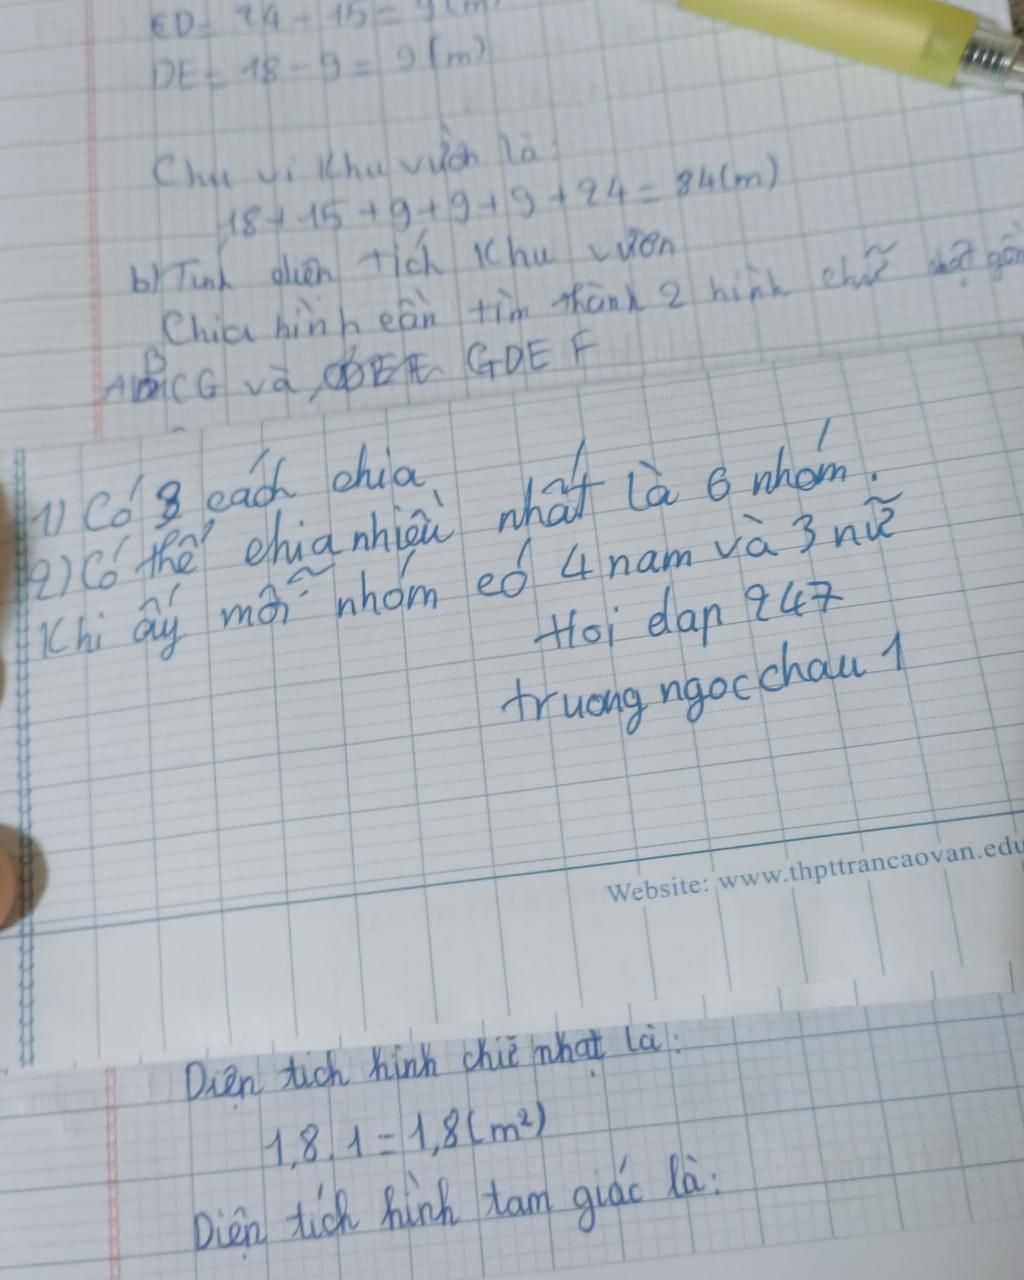 ED = 24 - 15 = 9 (m)
DE = 18 - 9 = 9 (m)
Chu vi khu vườn là
18 + 15 + 9 + 9 + 9 + 24 = 84 (m)
b) Tính diên tích khu vườn
Chia hình cần tìm thành 2 hình chữ nhật gồm
ABCG và GDEF
1) Có 8 cách chia
2) Có thể chia nhiều nhất là 6 nhóm.
Khi ấy mỗi nhóm có 4 nam và 3 nữ
Hoi dap 247
truong ngocchau 1
Website: www.thpttrancaovan.edu
Diện tích hình chữ nhật là:
1,8.1 = 1,8 (m²)
Diện tích hình tam giác là: